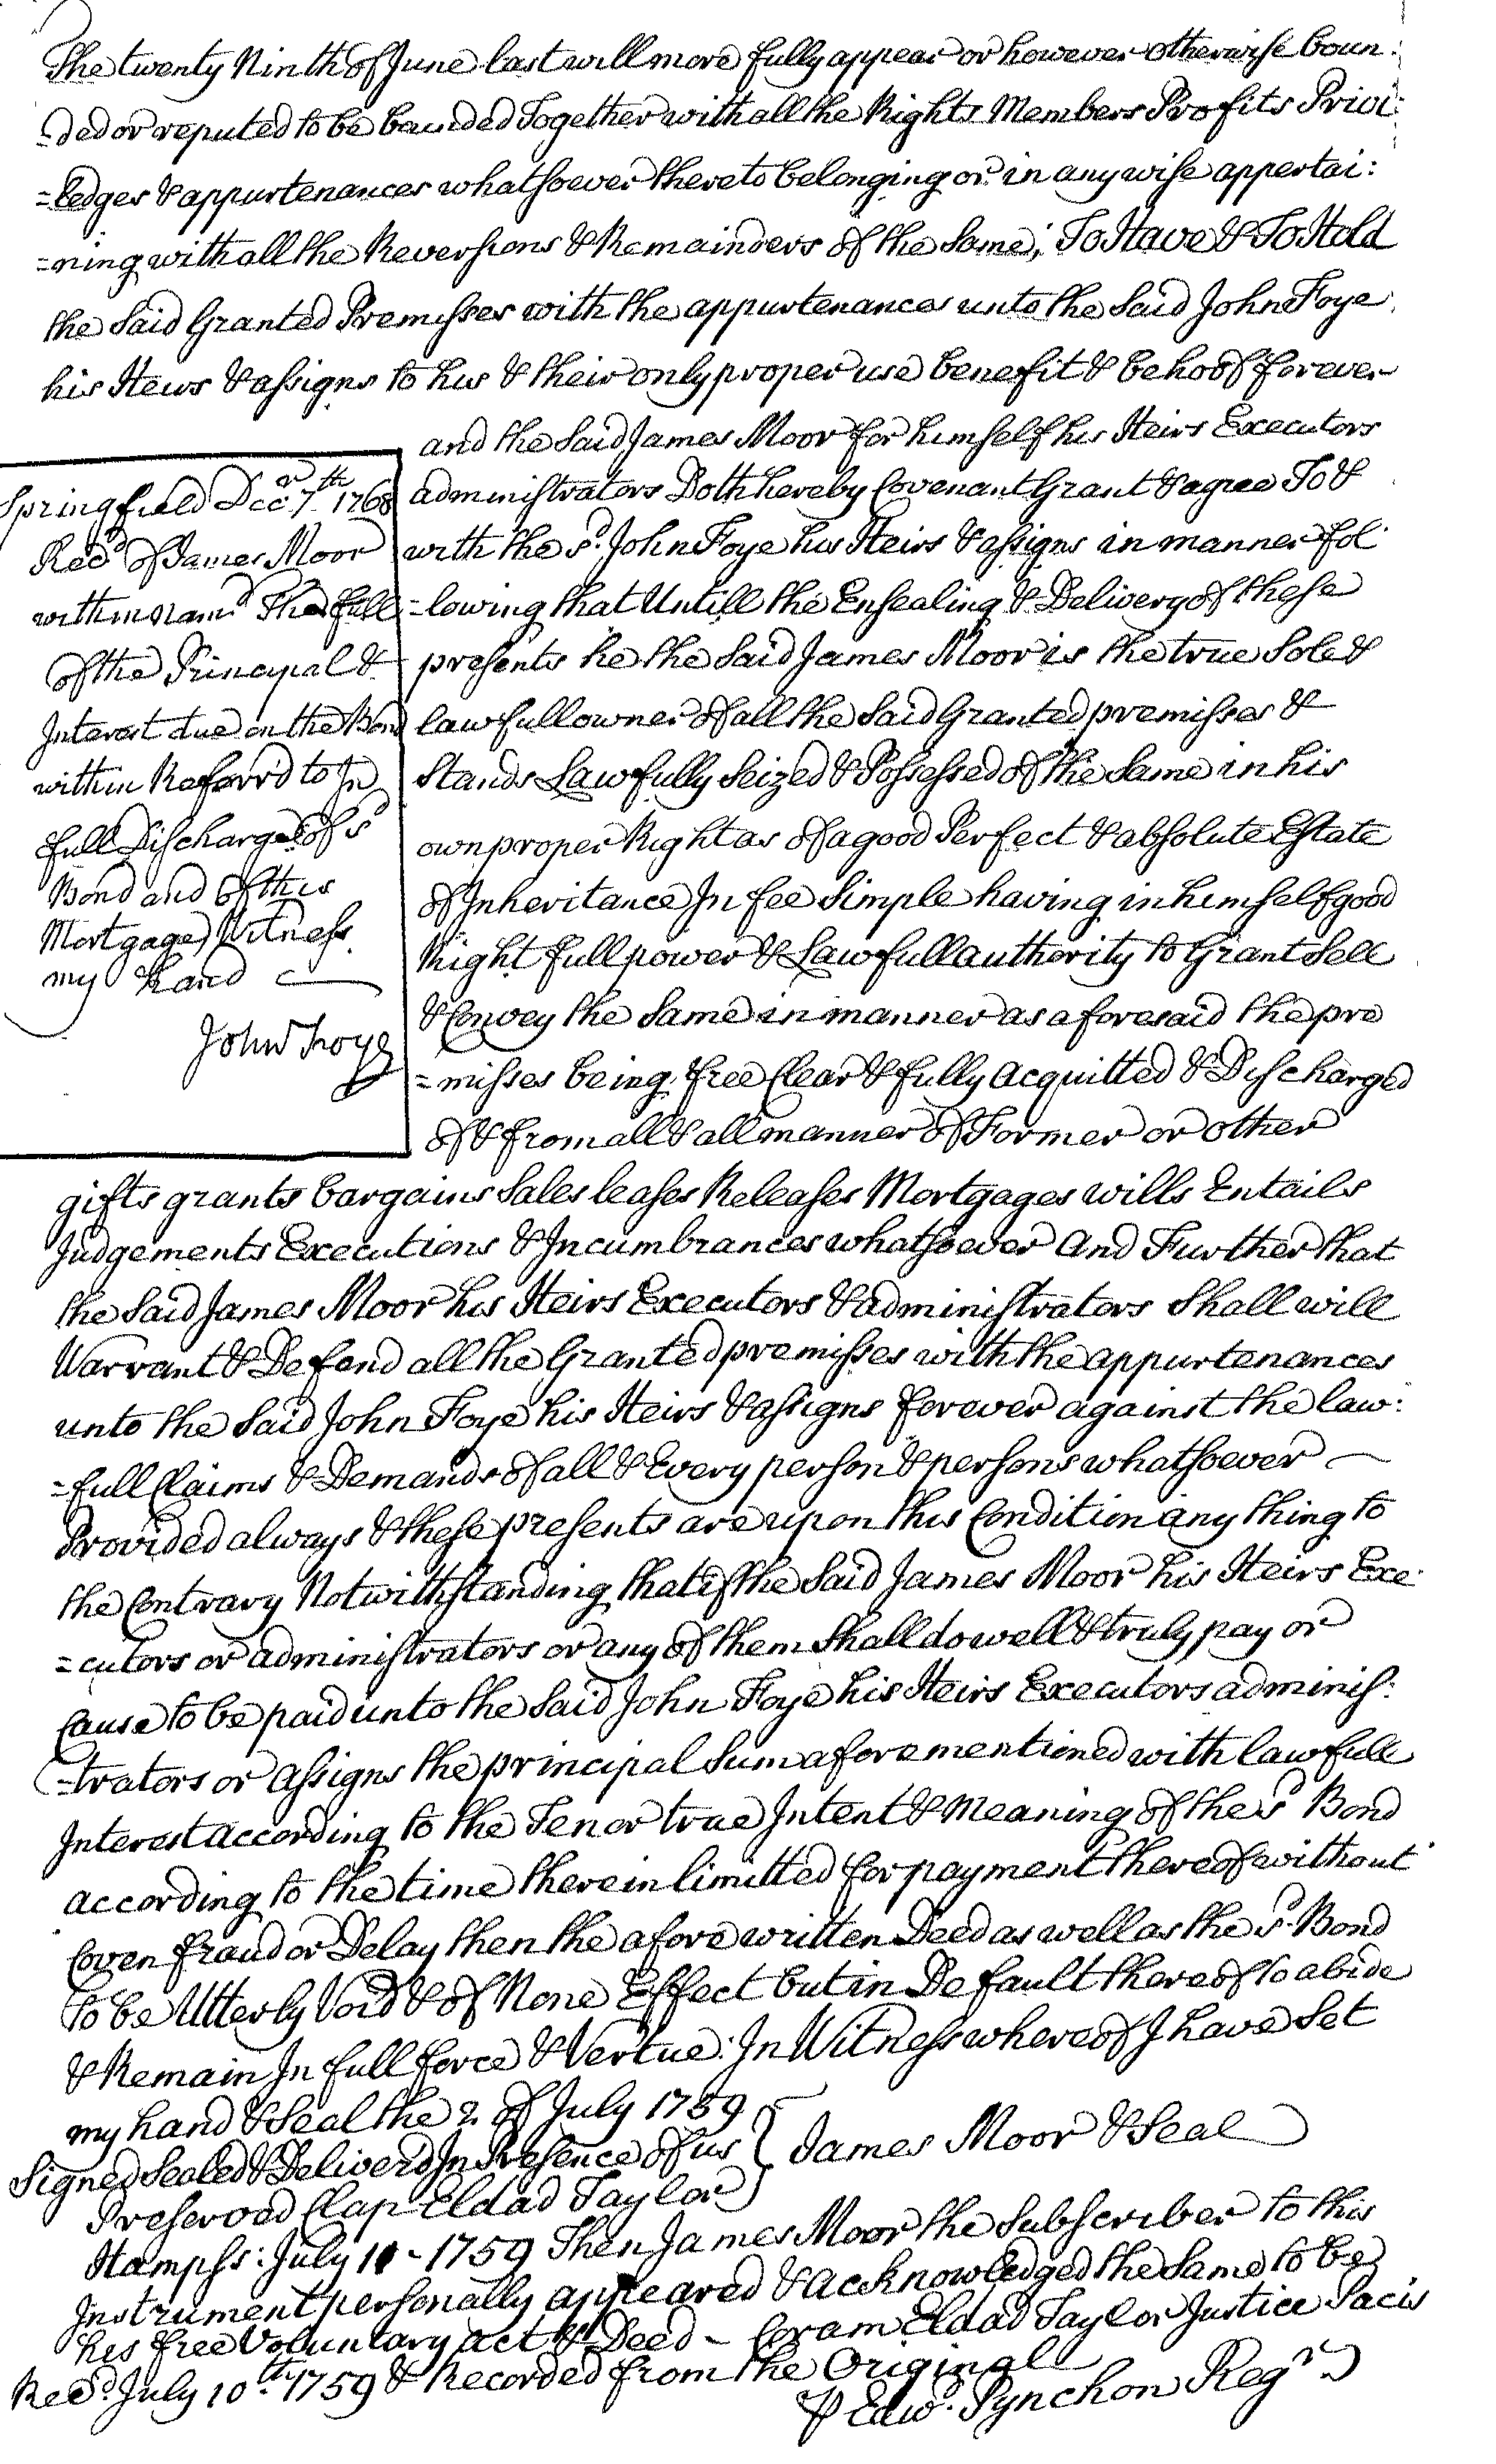 The twenty Ninth of June last will more fully appear or however otherwise boun:
=ded or reputed to be bounded Together with all the Rights Members Profits Privi:
=ledges & appurtenances whatsoever thereto belonging or in any wise appertai:
=ning with all the Reversions & Remainders of the Same; To Have & To Hold
the Said Granted Premisses with the appurtenances unto the Said John Foye
his Heirs & assigns to his & their only proper use benefit & behoof forever
and the Said James Moor for himself his Heirs Executors
administrators Doth hereby Covenant Grant & agree To &
with the sd. John Foye his Heirs & assigns in manner fol
=lowing that Untill the Ensealing & Delivery of these
presents he the Said James Moor is the true Sole &
lawfull owner of all the Said Granted premisses &
Stands Lawfully Seized & Possessed of the Same in his
own proper Right as of a good Perfect & absolute Estate
of Inheritance In fee Simple having in himself good
Right full power & Lawfull authority to Grant Sell
& Convey the Same in manner as aforesaid the pre
=misses being free Clear & fully Acquitted & Discharged
of & from all & all manner of Former or other
Springfield Decr. 7th 1768
Recd of James Moor
within nam'd The full
of the Principal &
Interest due on the Bond
within Referr'd to In
full Discharge of sd
Bond and of this
Mortgage, Witness
my Hand
John Foye
gifts grants bargains Sales leases Releases Mortgages wills Entails
Judgements Executions & Incumbrances whatsoever And Further that
the Said James Moor his Heirs Executors & administrators Shall will
Warrant & Defend all the Granted premisses with the appurtenances
unto the Said John Foye his Heirs & assigns forever against the law:
=full Claims & Demands of all & Every person & persons whatsoever
Provided always & these presents are upon this Condition any thing to
the Contrary Notwithstanding that if the Said James Moor his Heirs Exe:
=cutors or administrators or any of them Shall do well & truly pay or
Cause to be paid unto the Said John Foye his Heirs Executors adminis:
=trators or assigns the principal Sum aforementioned with lawfull
Interest according to the Tenor true Intent & Meaning of the sd Bond
according to the time therein limitted for payment thereof without
Coven fraud or Delay then the afore written Deed as well as the sd. Bond
to be Utterly Void & of None Effect but in Default thereof to abide
& Remain In full force & Vertue: In Witness whereof I have Set
my hand & Seal the 2 of July 1759
Signed Sealed & Deliverd In Presence of us } James Moor & Seal
Preserved Clap Eldad Taylor
Hampss: July 10 - 1759 Then James Moor the Subscriber to this
Instrument personally appeared & acknowledged the Same to be
his free Voluntary act & Deed - Coram Eldad Taylor Justice Pacis
Recd. July 10th. 1759 & Recorded from the Original
P Edwd. Pynchon Regr.